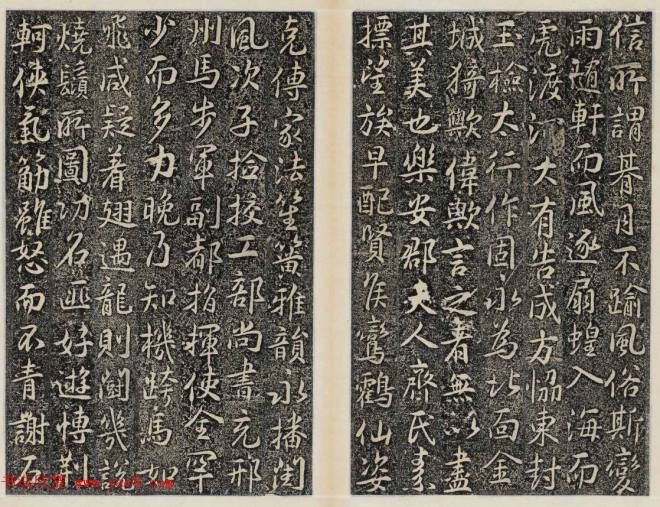 信所謂朞月不踰風俗斯變
雨随軒而風逐扇蝗入海而
虎渡河大有告成方恊東封
玉檢太行作固永為北面金
城猗歟偉歟言之者無以盡
其美也樂安郡夫人齊氏素
摽望族早配賢侯鸞鸖仙姿
克傅家法笙簧雅韻永播閨
風次子捡挍工部尚書充邢
州馬步軍副都指揮使全罕
少而多力晚乃知機跨馬如
飛咸疑着翅遇龍則鬪幾説
燒鬚所圖功名逥好遊慱荆
軻俠氣筋雖怒而不青謝石